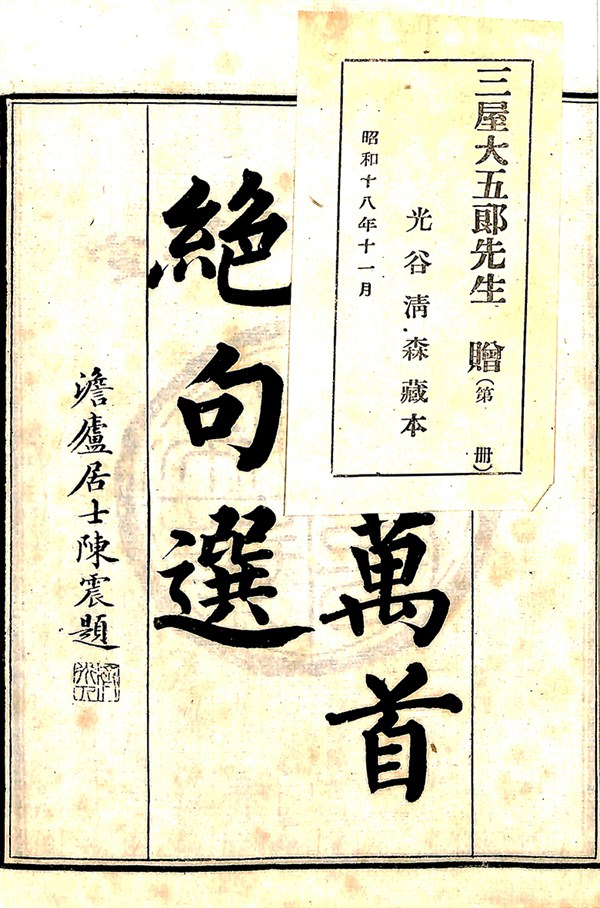 三屋大五郎先生 贈（第 册）
光谷清.森藏本
昭和十八年十一月
萬首
絶句選
澹廬居士陳震題